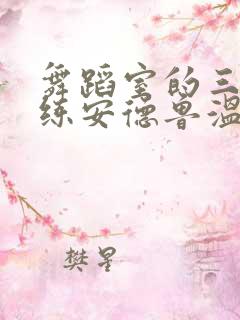 舞蹈室的三
练安德鲁温
樊星